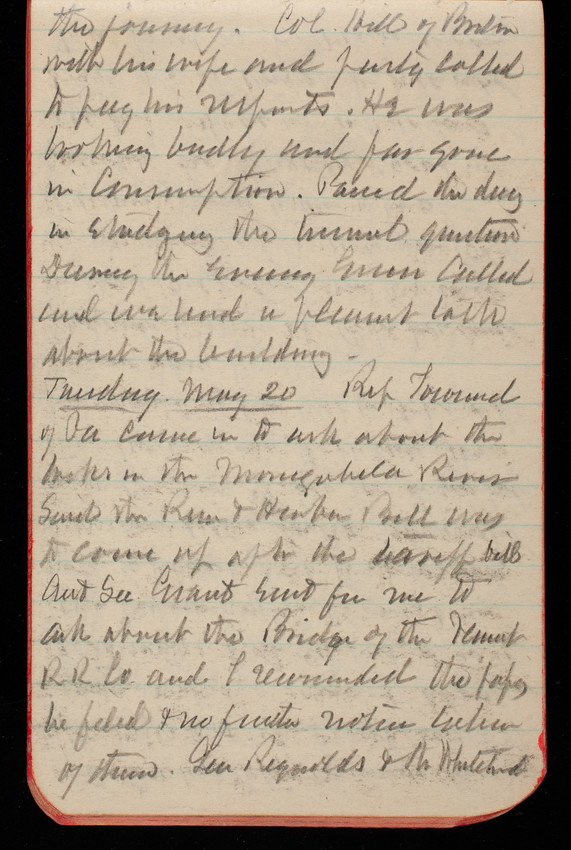 the journey. Col. Hill of Boston
with his wife and party called
to pay his respects. He was
looking badly and far gone
in Consumption. Passed the day
in studying the tunnel question
During the Evening Green Called
and we had a pleasant talk
about the building -
Tuesday. May 20 Rep Townsend
of Pa came in to ask about the
locks in the Monogahela River
Said the River & Harbor Bill was
to come up after the tariff bill
Act Sec Grant sent for me to
ask about the Bridge of the
RR Co and I recommended the papers
be filed & no further notice taken
of them. Gen Reynolds & Mr